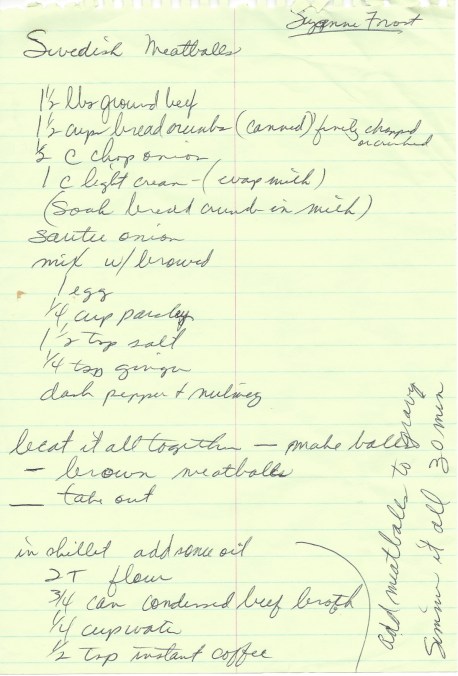 Suzanne Frost
Swedish Meatballs
1 1/2 lbs ground beef
1 1/2 cups bread crumbs (canned) finely chopped
or crushed
1/2 c chop onion
1 c light cream - (evap milk)
(Soak bread crumb in milk)
sautee onion
mix w/
1 egg
1/4 cup parsley
1 1/2 tsp salt
1/4 tsp ginger
dash pepper + nutmeg
beat it all together — make balls
- brown meatballs
- take out
in skillet add some oil
2T flour
3/4 can condensed beef broth
1/4 cup water
1/2 tsp instant coffee
add meatballs to gravy
Simmer it all 30 min